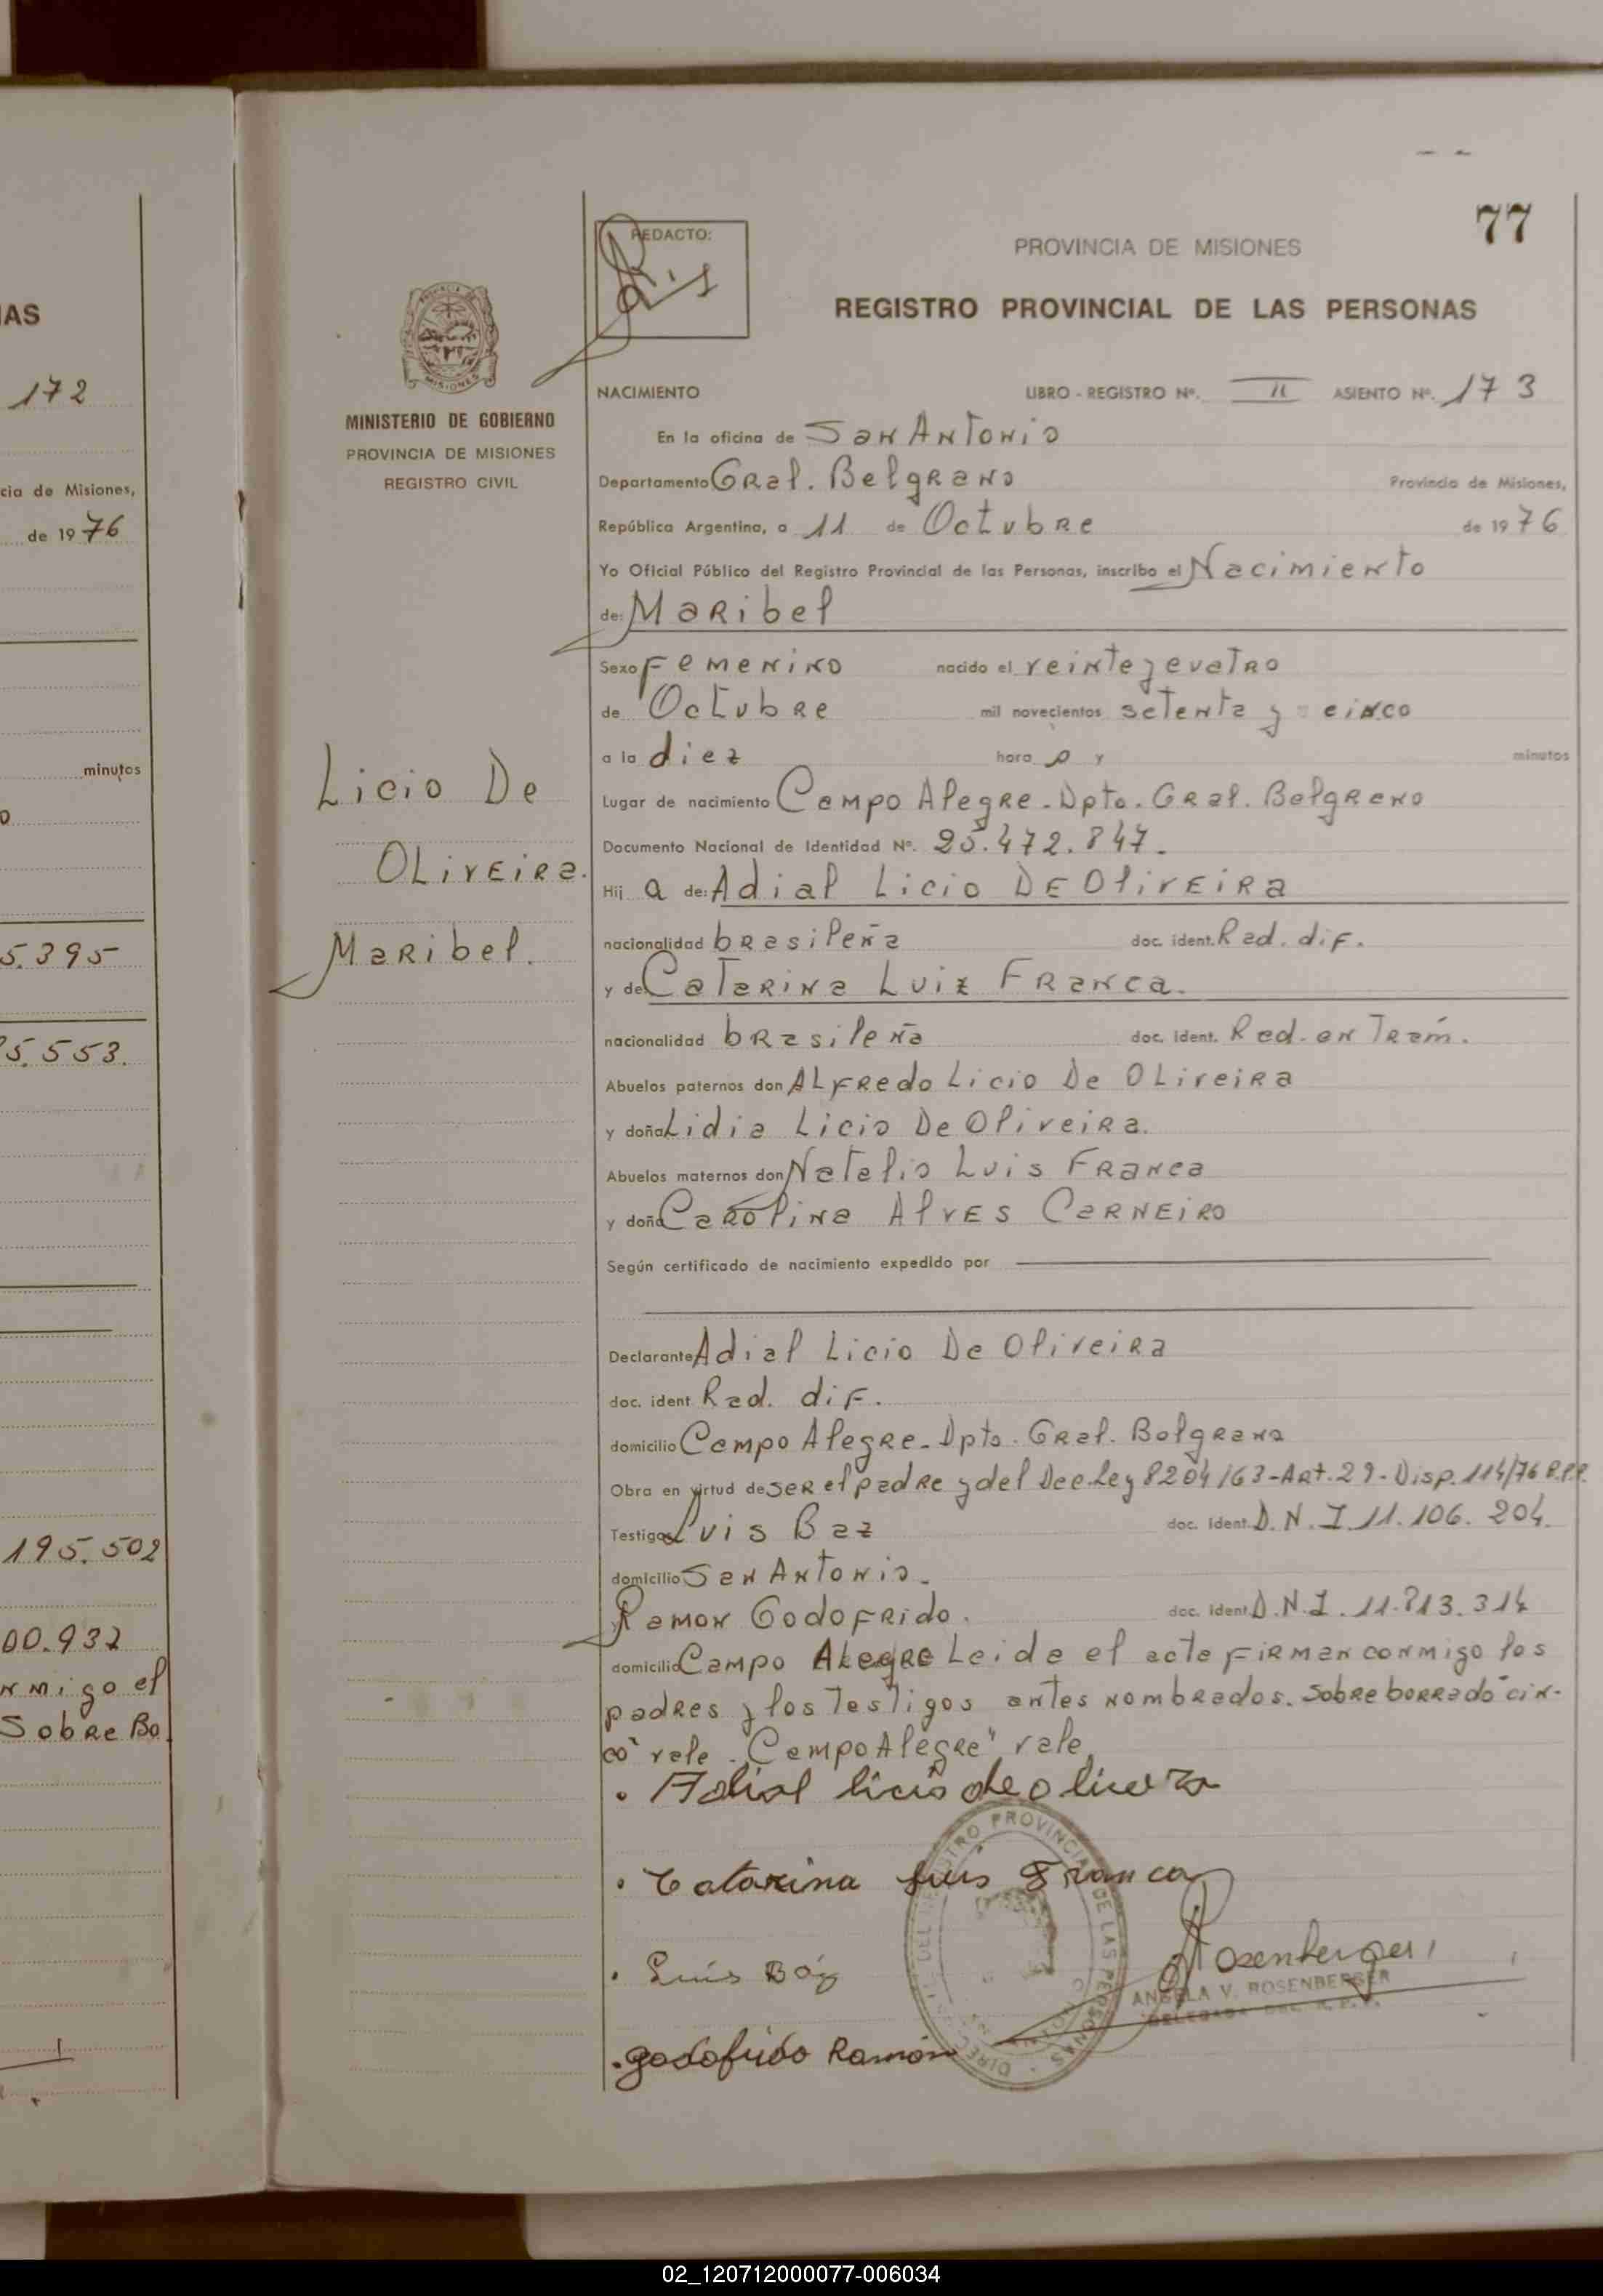 IAS
172
cia de Misiones,
de 1976
minutos
5.395
5.553.
195.502
00.932
nmigo el
Sobre Bo
77
REDACTO:
PROVINCIA DE MISIONES
REGISTRO PROVINCIAL DE LAS PERSONAS
MINISTERIO DE GOBIERNO
PROVINCIA DE MISIONES
REGISTRO CIVIL
Licio De
Oliveira.
Maribel.
NACIMIENTO LIBRO - REGISTRO Nº. II ASIENTO Nº. 173
En la oficina de San Antonio
Departamento Gral. Belgrano Provincia de Misiones,
República Argentina, a 11 de Octubre de 1976
Yo Oficial Público del Registro Provincial de las Personas, inscribo el Nacimiento
de: Maribel
Sexo Femenino nacido el veinte y cuatro
de Octubre mil novecientos setenta y cinco
a la diez hora y minutos
Lugar de nacimiento Campo Alegre - Dpto. Gral. Belgrano
Documento Nacional de Identidad Nº. 25.472.847.
Hij a de: Adial Licio De Oliveira
nacionalidad brasileña doc. ident. Rad. dif.
y de Catarina Luiz Franca.
nacionalidad brasileña doc. ident. Rad. en Trám.
Abuelos paternos don Alfredo Licio De Oliveira
y doña Lidia Licio De Oliveira.
Abuelos maternos don Natalio Luis Franca
y doña Carolina Alves Carneiro
Según certificado de nacimiento expedido por
Declarante Adial Licio De Oliveira
doc. ident Rad. dif.
domicilio Campo Alegre - Dpto. Gral. Belgrano
Obra en virtud de ser el padre y del Dec. Ley 8204/63 - Art. 29 - Disp. 114/76 R.P.P.
Testigos Luis Baz doc. ident. D.N.I 11.106.204.
domicilio San Antonio.
Ramon Godofrido. doc. ident. D.N.I. 11.813.314
domicilio Campo Alegre Leida el acta firman conmigo los
padres y los Testigos antes nombrados. Sobre borrado "cin-
co" vale. "Campo Alegre" vale
. Adial licio de olivera
. Catarina Luis Franca
. Luis Báz
Rosenberger
ANGELA V. ROSENBERGER
DELEGADA DEL R.P.P.
. godofrido Ramón
02_120712000077-006034